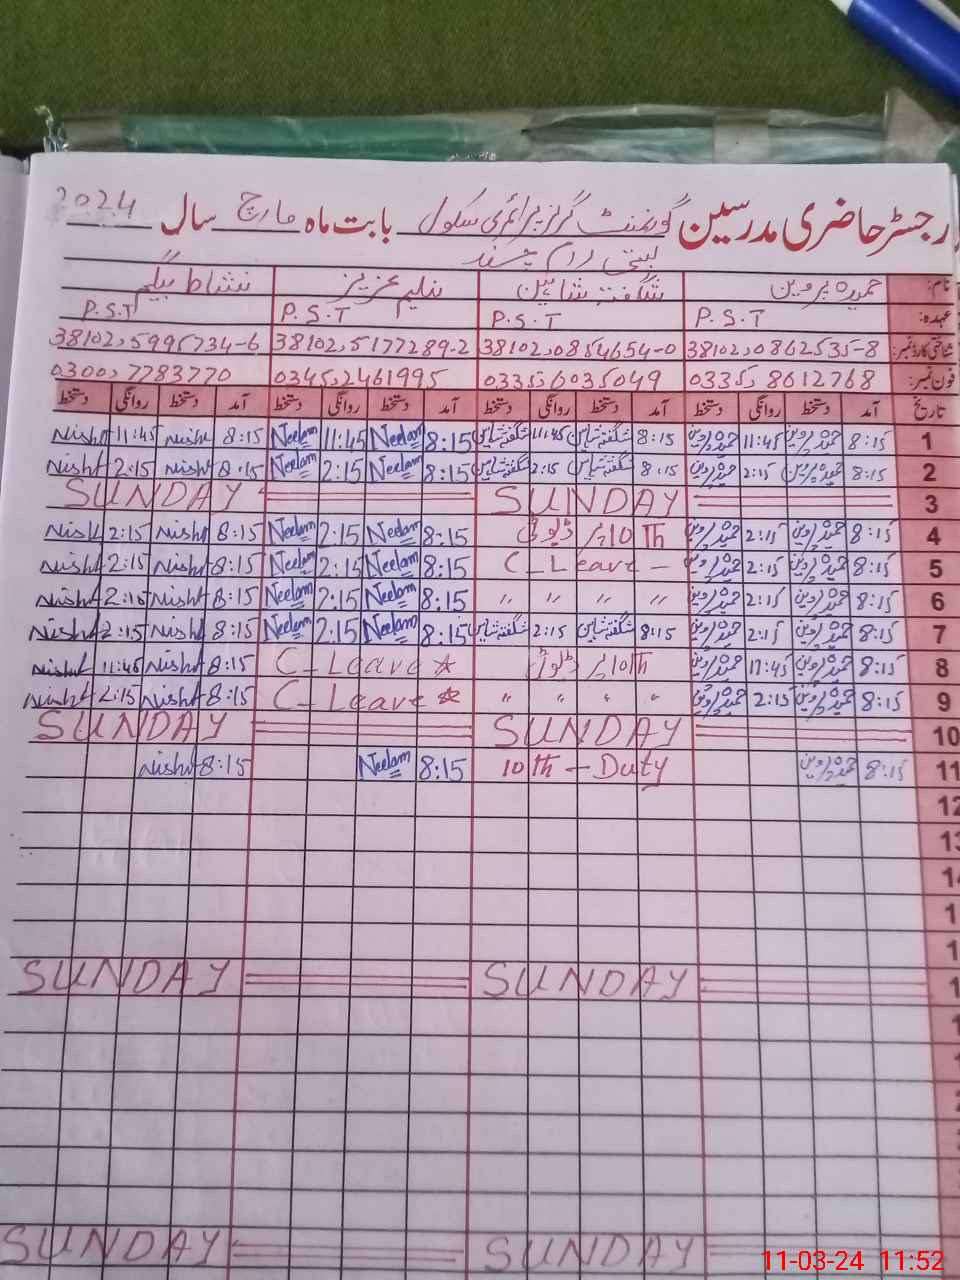 رجسٹر حاضری مدرسین گورنمنٹ گرلز پرائمری سکول بابت ماہ مارچ سال 2024
بستی رام چند
نام: حمیدہ پروین شگفتہ شاہین نیلم عزیز نشاط بیگم
عہدہ: P.S.T P.S.T P.S.T P.S.T
شناختی کارڈ نمبر: 38102,0862535-8 38102,0854654-0 38102,5177289-2 38102,5995734-6
فون نمبر: 0335, 8612768 0335, 6035049 0345,2461995 0300,7783770
تاریخ آمد دستخط روانگی دستخط آمد دستخط روانگی دستخط آمد دستخط روانگی دستخط آمد دستخط روانگی دستخط
1 8:15 حمیدہ پروین 11:45 حمیدہ پروین 8:15 شگفتہ شاہین 11:45 شگفتہ شاہین 8:15 Neelam 11:45 Neelam 8:15 Nisht 11:45 Nisht
2 8:15 حمیدہ پروین 2:15 حمیدہ پروین 8:15 شگفتہ شاہین 2:15 شگفتہ شاہین 8:15 Neelam 2:15 Neelam 8:15 Nisht 2:15 Nisht
3 SUNDAY SUNDAY
4 8:15 حمیدہ پروین 2:15 حمیدہ پروین 10Th پر ڈیوٹی 8:15 Neelam 2:15 Neelam 8:15 Nisht 2:15 Nisht
5 8:15 حمیدہ پروین 2:15 حمیدہ پروین C_Leave – 8:15 Neelam 2:15 Neelam 8:15 Nisht 2:15 Nisht
6 8:15 حمیدہ پروین 2:15 حمیدہ پروین " " " " 8:15 Neelam 2:15 Neelam 8:15 Nisht 2:15 Nisht
7 8:15 حمیدہ پروین 2:15 حمیدہ پروین 8:15 شگفتہ شاہین 2:15 شگفتہ شاہین 8:15 Neelam 2:15 Neelam 8:15 Nisht 2:15 Nisht
8 8:15 حمیدہ پروین 11:45 حمیدہ پروین 10Th پر ڈیوٹی C_Leave ☆ 8:15 Nisht 11:45 Nisht
9 8:15 حمیدہ پروین 2:15 حمیدہ پروین " " " " C_Leave ☆ 8:15 Nisht 2:15 Nisht
10 SUNDAY SUNDAY
11 8:15 حمیدہ پروین 10th – Duty 8:15 Neelam 8:15 Nisht
12
13
SUNDAY SUNDAY
SUNDAY SUNDAY
11-03-24 11:52